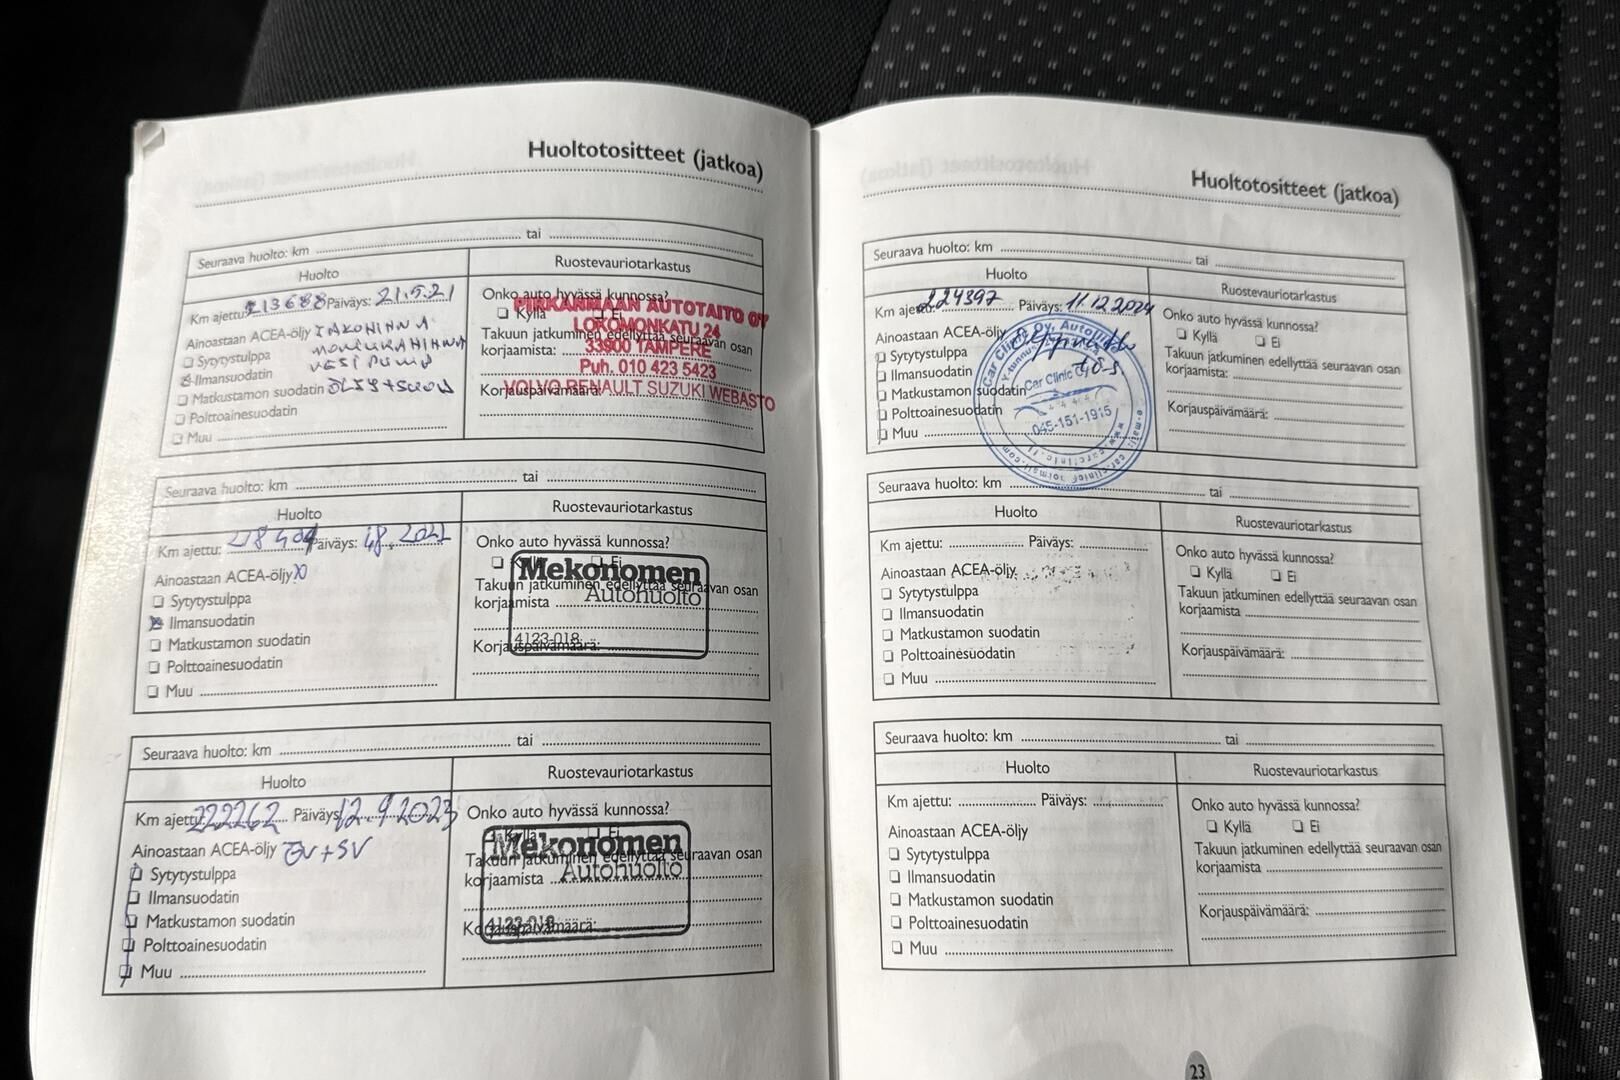 Huoltotositteet (jatkoa)
Seuraava huolto: km tai
Huolto
Ruostevauriotarkastus
Km ajettu: 213688 Päiväys: 21.5.21
Ainoastaan ACEA-öljy JAKOHIHNA
MONIURAHIHNA
Sytytystulppa VESIPUMP
Ilmansuodatin
Matkustamon suodatin ÖLJY+SUOD
Polttoainesuodatin
Muu
Onko auto hyvässä kunnossa?
Kyllä Ei
Takuun jatkuminen edellyttää seuraavan osan
korjaamista:
Korjauspäivämäärä:
PIRKANMAAN AUTOTAITO OY
LOKOMONKATU 24
33900 TAMPERE
Puh. 010 423 5423
VOLVO RENAULT SUZUKI WEBASTO
Seuraava huolto: km tai
Huolto
Ruostevauriotarkastus
Km ajettu: 218404 Päiväys:
Ainoastaan ACEA-öljy X
Sytytystulppa
Ilmansuodatin
Matkustamon suodatin
Polttoainesuodatin
Muu
Onko auto hyvässä kunnossa?
Kyllä Ei
Takuun jatkuminen edellyttää seuraavan osan
korjaamista
Korjauspäivämäärä:
Mekonomen
Autohuolto
4123-018
Seuraava huolto: km tai
Huolto
Ruostevauriotarkastus
Km ajettu: 222262 Päiväys: 12.9.2023
Ainoastaan ACEA-öljy ÖV+SV
Sytytystulppa
Ilmansuodatin
Matkustamon suodatin
Polttoainesuodatin
Muu
Onko auto hyvässä kunnossa?
Kyllä Ei
Takuun jatkuminen edellyttää seuraavan osan
korjaamista
Korjauspäivämäärä:
Mekonomen
Autohuolto
4123-018
Huoltotositteet (jatkoa)
Seuraava huolto: km tai
Huolto
Ruostevauriotarkastus
Km ajettu: 224397 Päiväys: 11.12.2024
Ainoastaan ACEA-öljy
Sytytystulppa
Ilmansuodatin
Matkustamon suodatin
Polttoainesuodatin
Muu
Car Clinic Oy, Autohuolto
Y-tunnus
Car Clinic
045-151-1915
Onko auto hyvässä kunnossa?
Kyllä Ei
Takuun jatkuminen edellyttää seuraavan osan
korjaamista:
Korjauspäivämäärä:
Seuraava huolto: km tai
Huolto
Ruostevauriotarkastus
Km ajettu: Päiväys:
Ainoastaan ACEA-öljy
Sytytystulppa
Ilmansuodatin
Matkustamon suodatin
Polttoainesuodatin
Muu
Onko auto hyvässä kunnossa?
Kyllä Ei
Takuun jatkuminen edellyttää seuraavan osan
korjaamista
Korjauspäivämäärä:
Seuraava huolto: km tai
Huolto
Ruostevauriotarkastus
Km ajettu: Päiväys:
Ainoastaan ACEA-öljy
Sytytystulppa
Ilmansuodatin
Matkustamon suodatin
Polttoainesuodatin
Muu
Onko auto hyvässä kunnossa?
Kyllä Ei
Takuun jatkuminen edellyttää seuraavan osan
korjaamista
Korjauspäivämäärä:
23